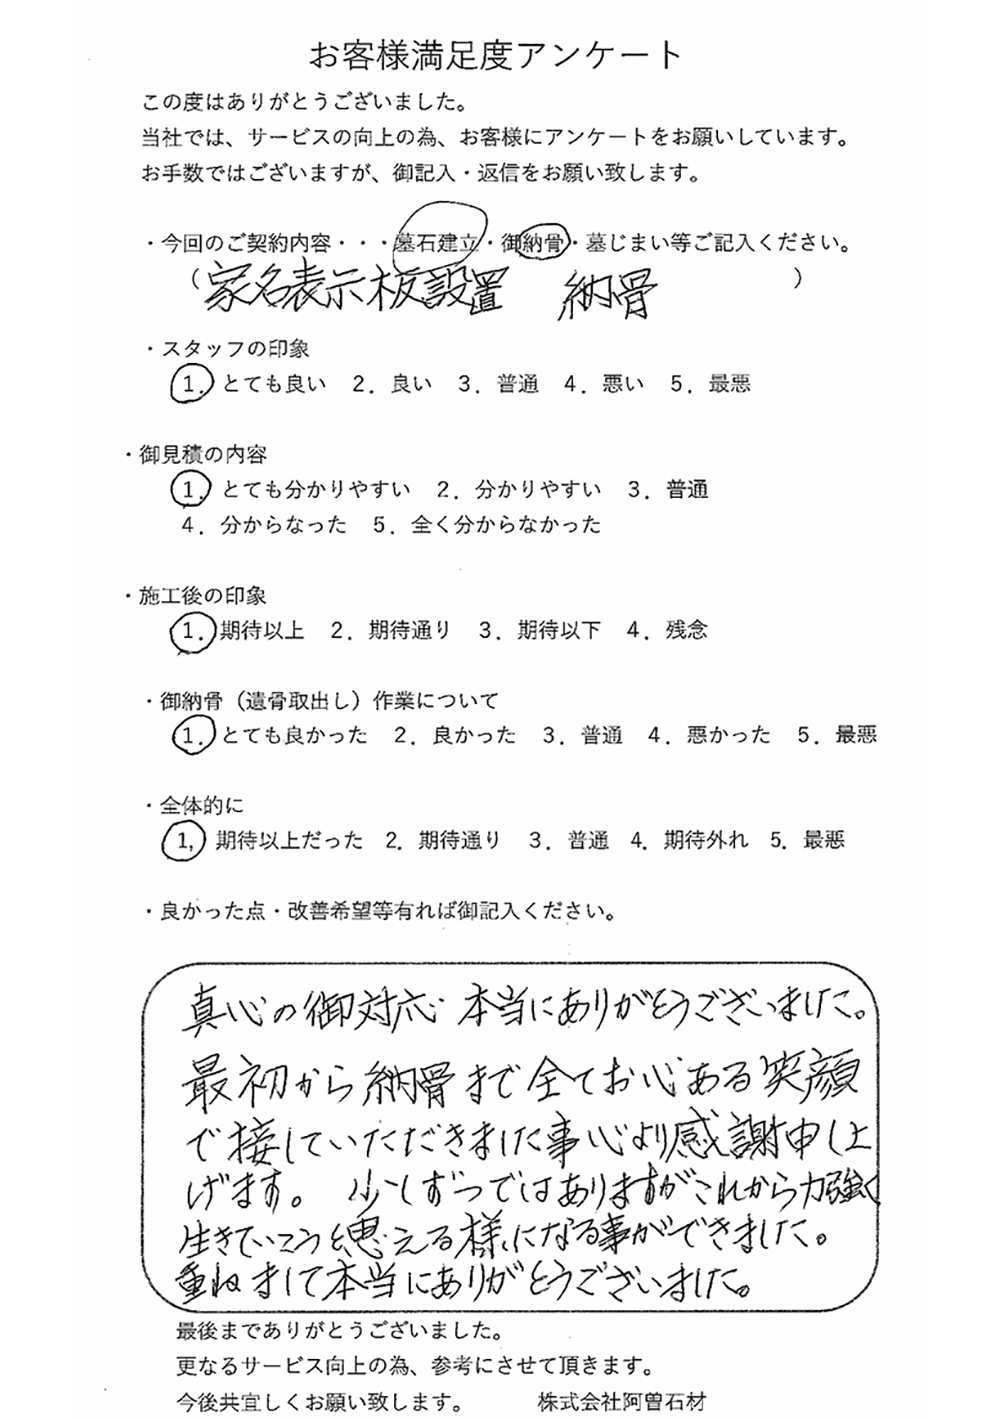 お客様満足度アンケート
この度はありがとうございました。
当社では、サービスの向上の為、お客様にアンケートをお願いしています。
お手数ではございますが、御記入・返信をお願い致します。
・今回のご契約内容・・・墓石建立・御納骨・墓じまい等ご記入ください。
（家名表示板設置　納骨　）
・スタッフの印象
1．とても良い　2．良い　3．普通　4．悪い　5．最悪
・御見積の内容
1．とても分かりやすい　2．分かりやすい　3．普通
4．分からなった　5．全く分からなかった
・施工後の印象
1．期待以上　2．期待通り　3．期待以下　4．残念
・御納骨（遺骨取出し）作業について
1．とても良かった　2．良かった　3．普通　4．悪かった　5．最悪
・全体的に
1, 期待以上だった　2．期待通り　3．普通　4．期待外れ　5．最悪
・良かった点・改善希望等有れば御記入ください。
真心の御対応 本当にありがとうございました。
最初から納骨まで全てお心ある笑顔
で接していただきました事心より感謝申し上
げます。 少しずつではありますがこれから力強く
生きていこうと思える様になる事ができました。
重ねまして本当にありがとうございました。
最後までありがとうございました。
更なるサービス向上の為、参考にさせて頂きます。
今後共宜しくお願い致します。　株式会社阿曽石材